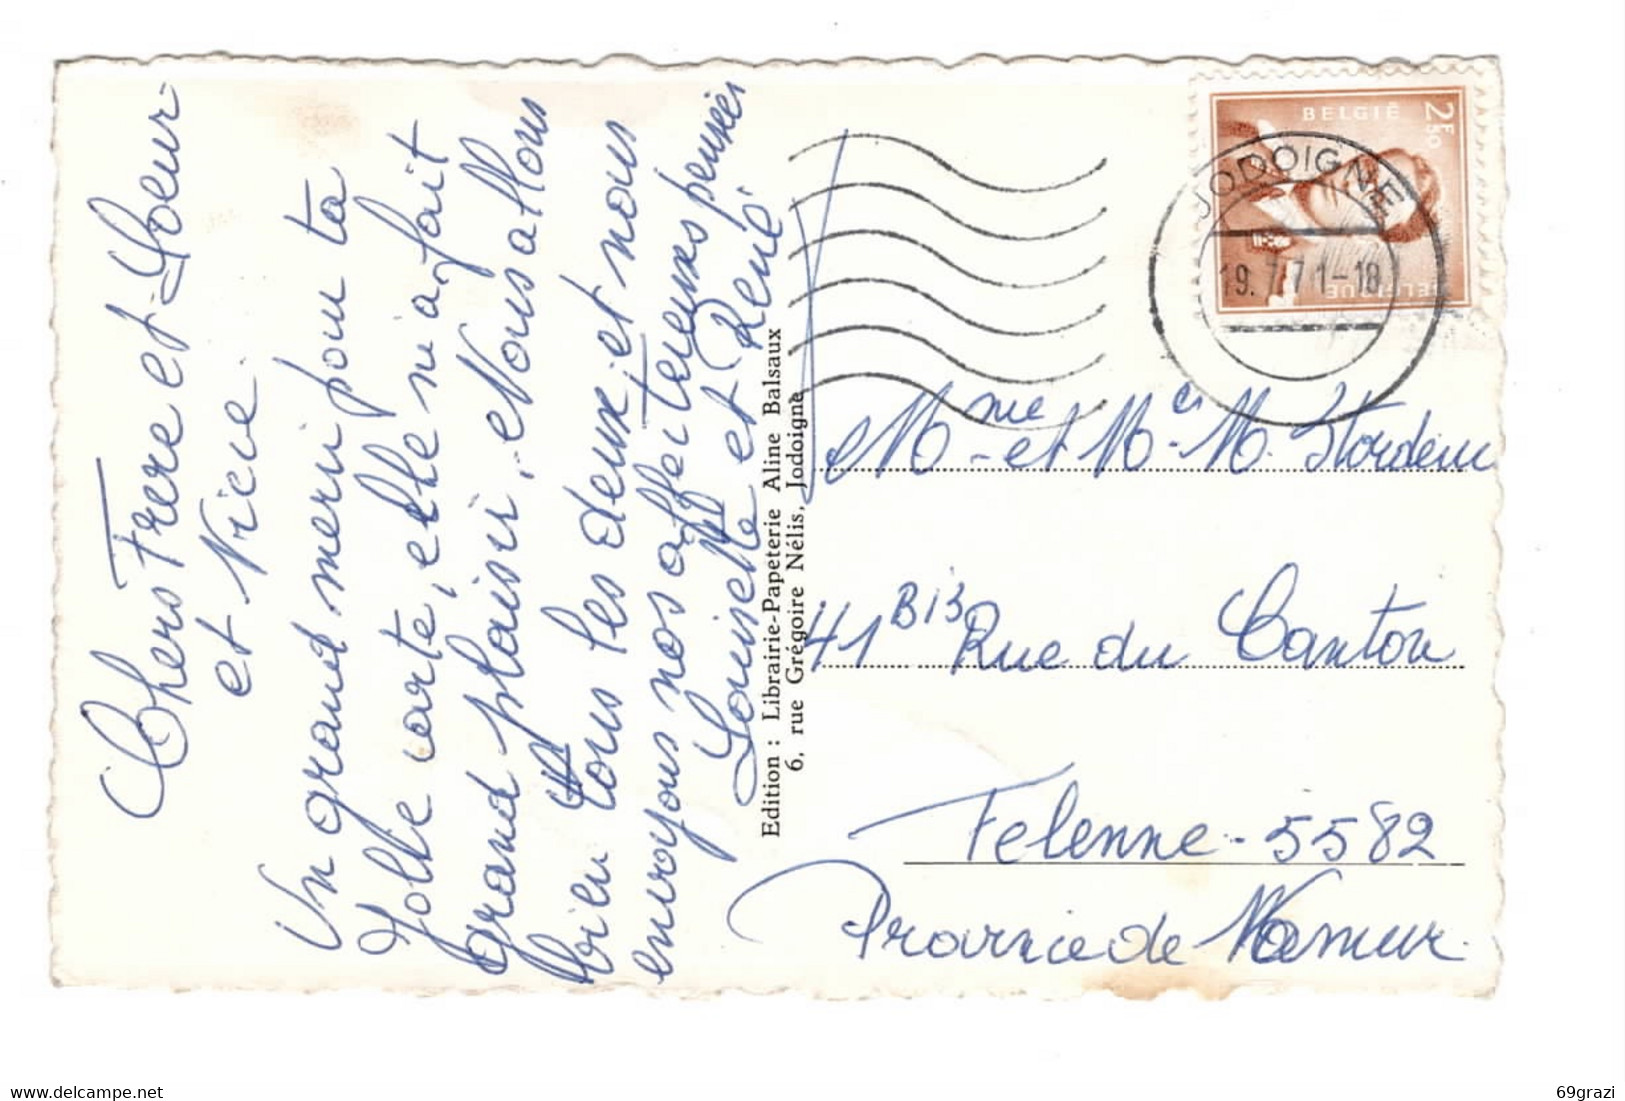 Chers Frere et Soeur
et Niece.
Un grand merci pour ta
Jolle carte, elle m'a fait
grand plaisir. Nous allons
bien tous les deux et nous
envoyons nos affectueuses pensées
Louisette et René
Edition : Librairie-Papeterie Aline Balsaux
6, rue Grégoire Nélis, Jodoigne
BELGIË
2F50
BELGIQUE
JODOIGNE
19.7.71-18
Mme et Mr M. Stordeur
41 Bis Rue du Canton
Felenne - 5582
Province de Namur.
www.delcampe.net
69grazi